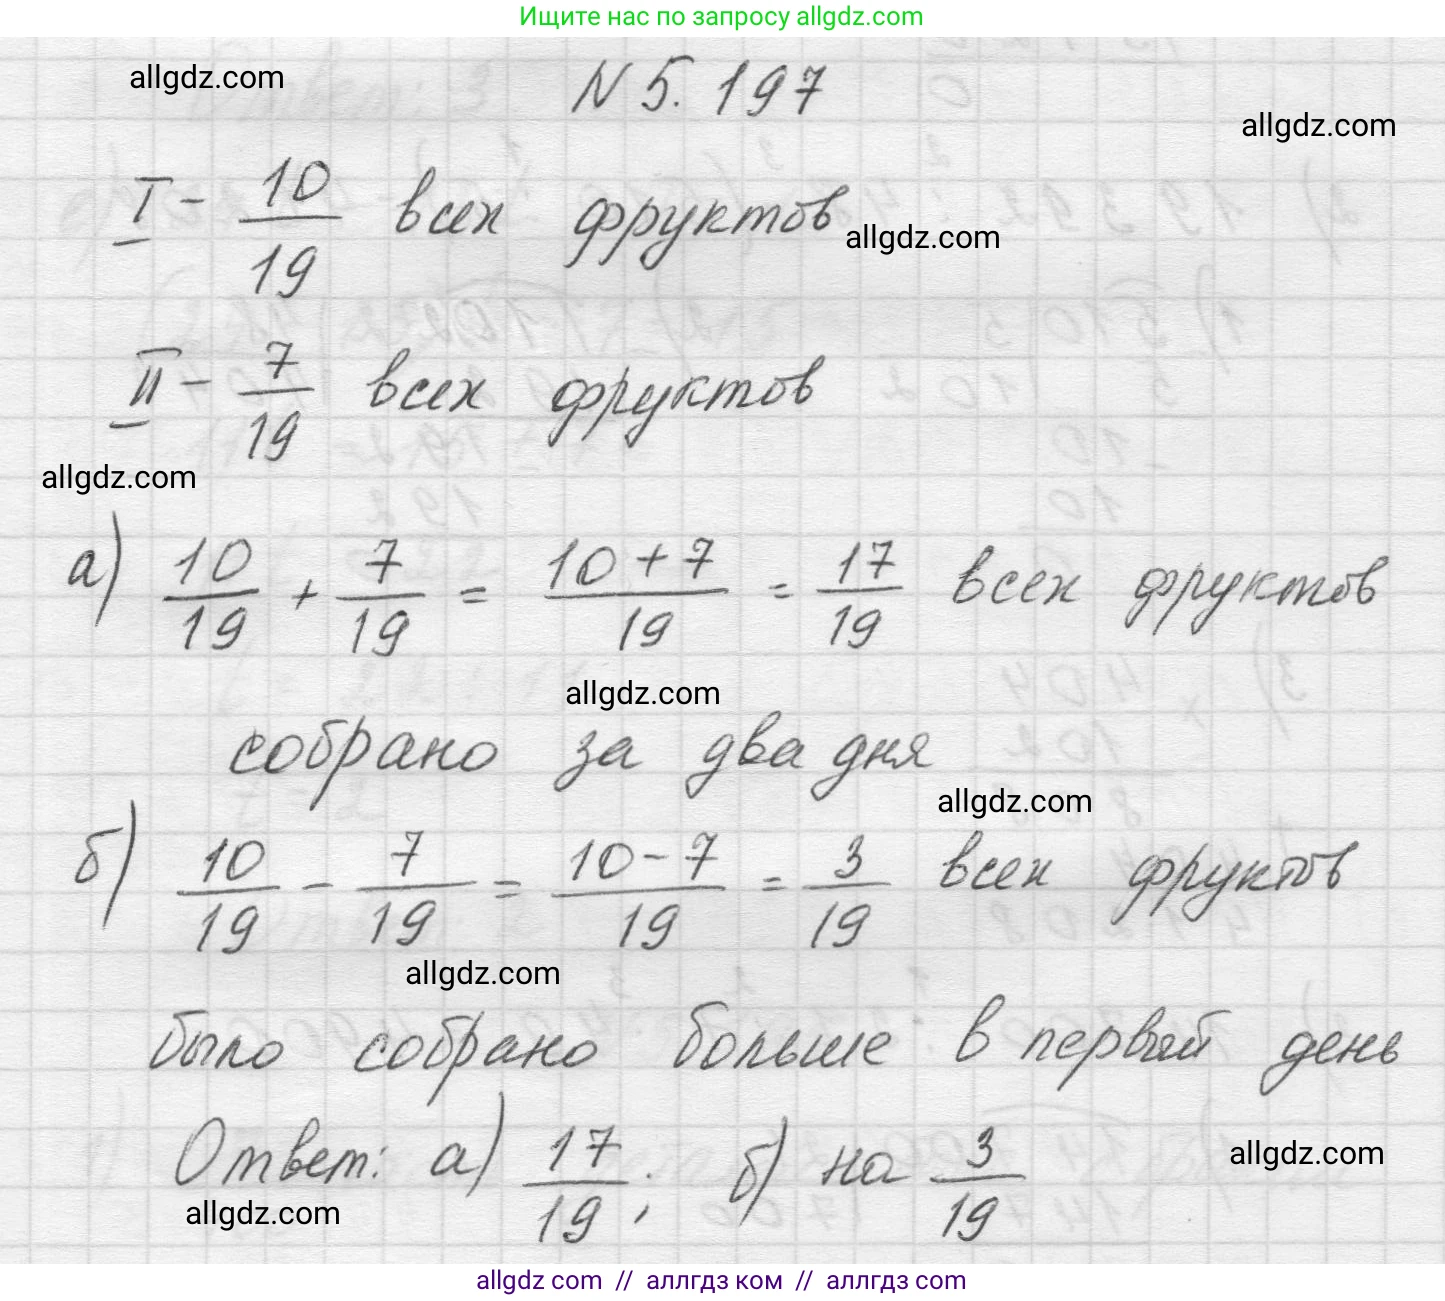 Ищите нас по запросу allgdz.com
allgdz.com
N 5.197
allgdz.com
I - 10/19 всех фруктов
allgdz.com
II - 7/19 всех фруктов
allgdz.com
а) 10/19 + 7/19 = (10+7)/19 = 17/19 всех фруктов
allgdz.com
собрано за два дня
allgdz.com
б) 10/19 - 7/19 = (10-7)/19 = 3/19 всех фруктов
allgdz.com
было собрано больше в первый день
Ответ: а) 17/19; б) на 3/19
allgdz.com
allgdz.com
allgdz com // аллгдз ком // аллгдз com